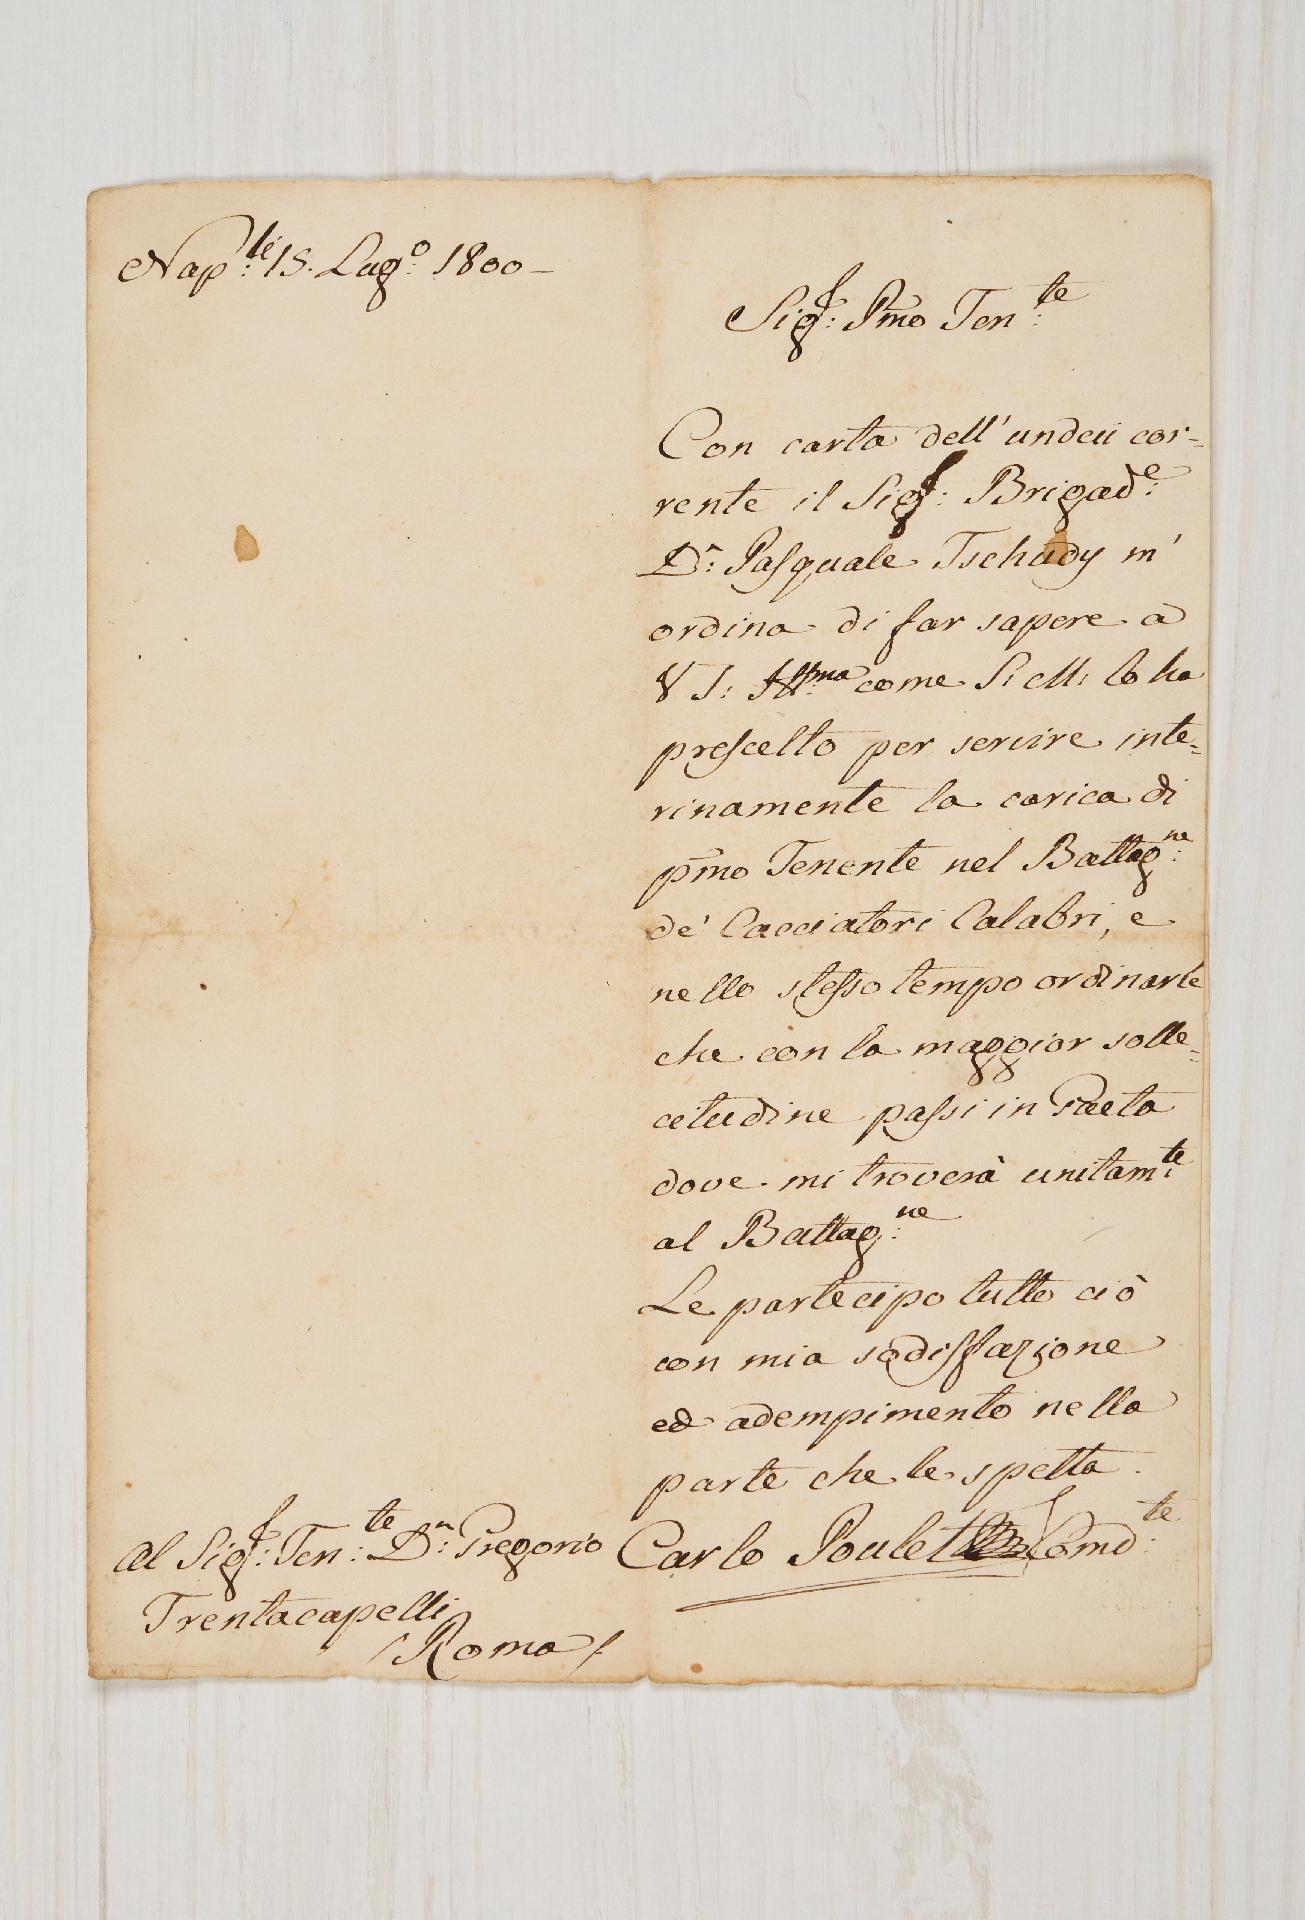 Nap:li 15. Lug:o 1800 –
Sig:r Pmo Ten:te
Con carta dell'undeci cor-
rente il Sig:r Brigad:e
D:n Pasquale Tschudy m'
ordina di far sapere a
V S: Ill:ma come S: M: lo ha
prescelto per servire inte-
rinamente la carica di
pmo Tenente nel Battag:ne
de' Cacciatori Calabri, e
nello stesso tempo ordinarle
che con la maggior solle-
citudine passi in Gaeta
dove mi troverà unitam:te
al Battag:ne
Le partecipo tutto ciò
con mia sodisfazione
ed adempimento nella
parte che le spetta.
Carlo Poulet Comd:te
Al Sig:r Ten:te D:n Gregorio
Trentacapelli
/Roma/